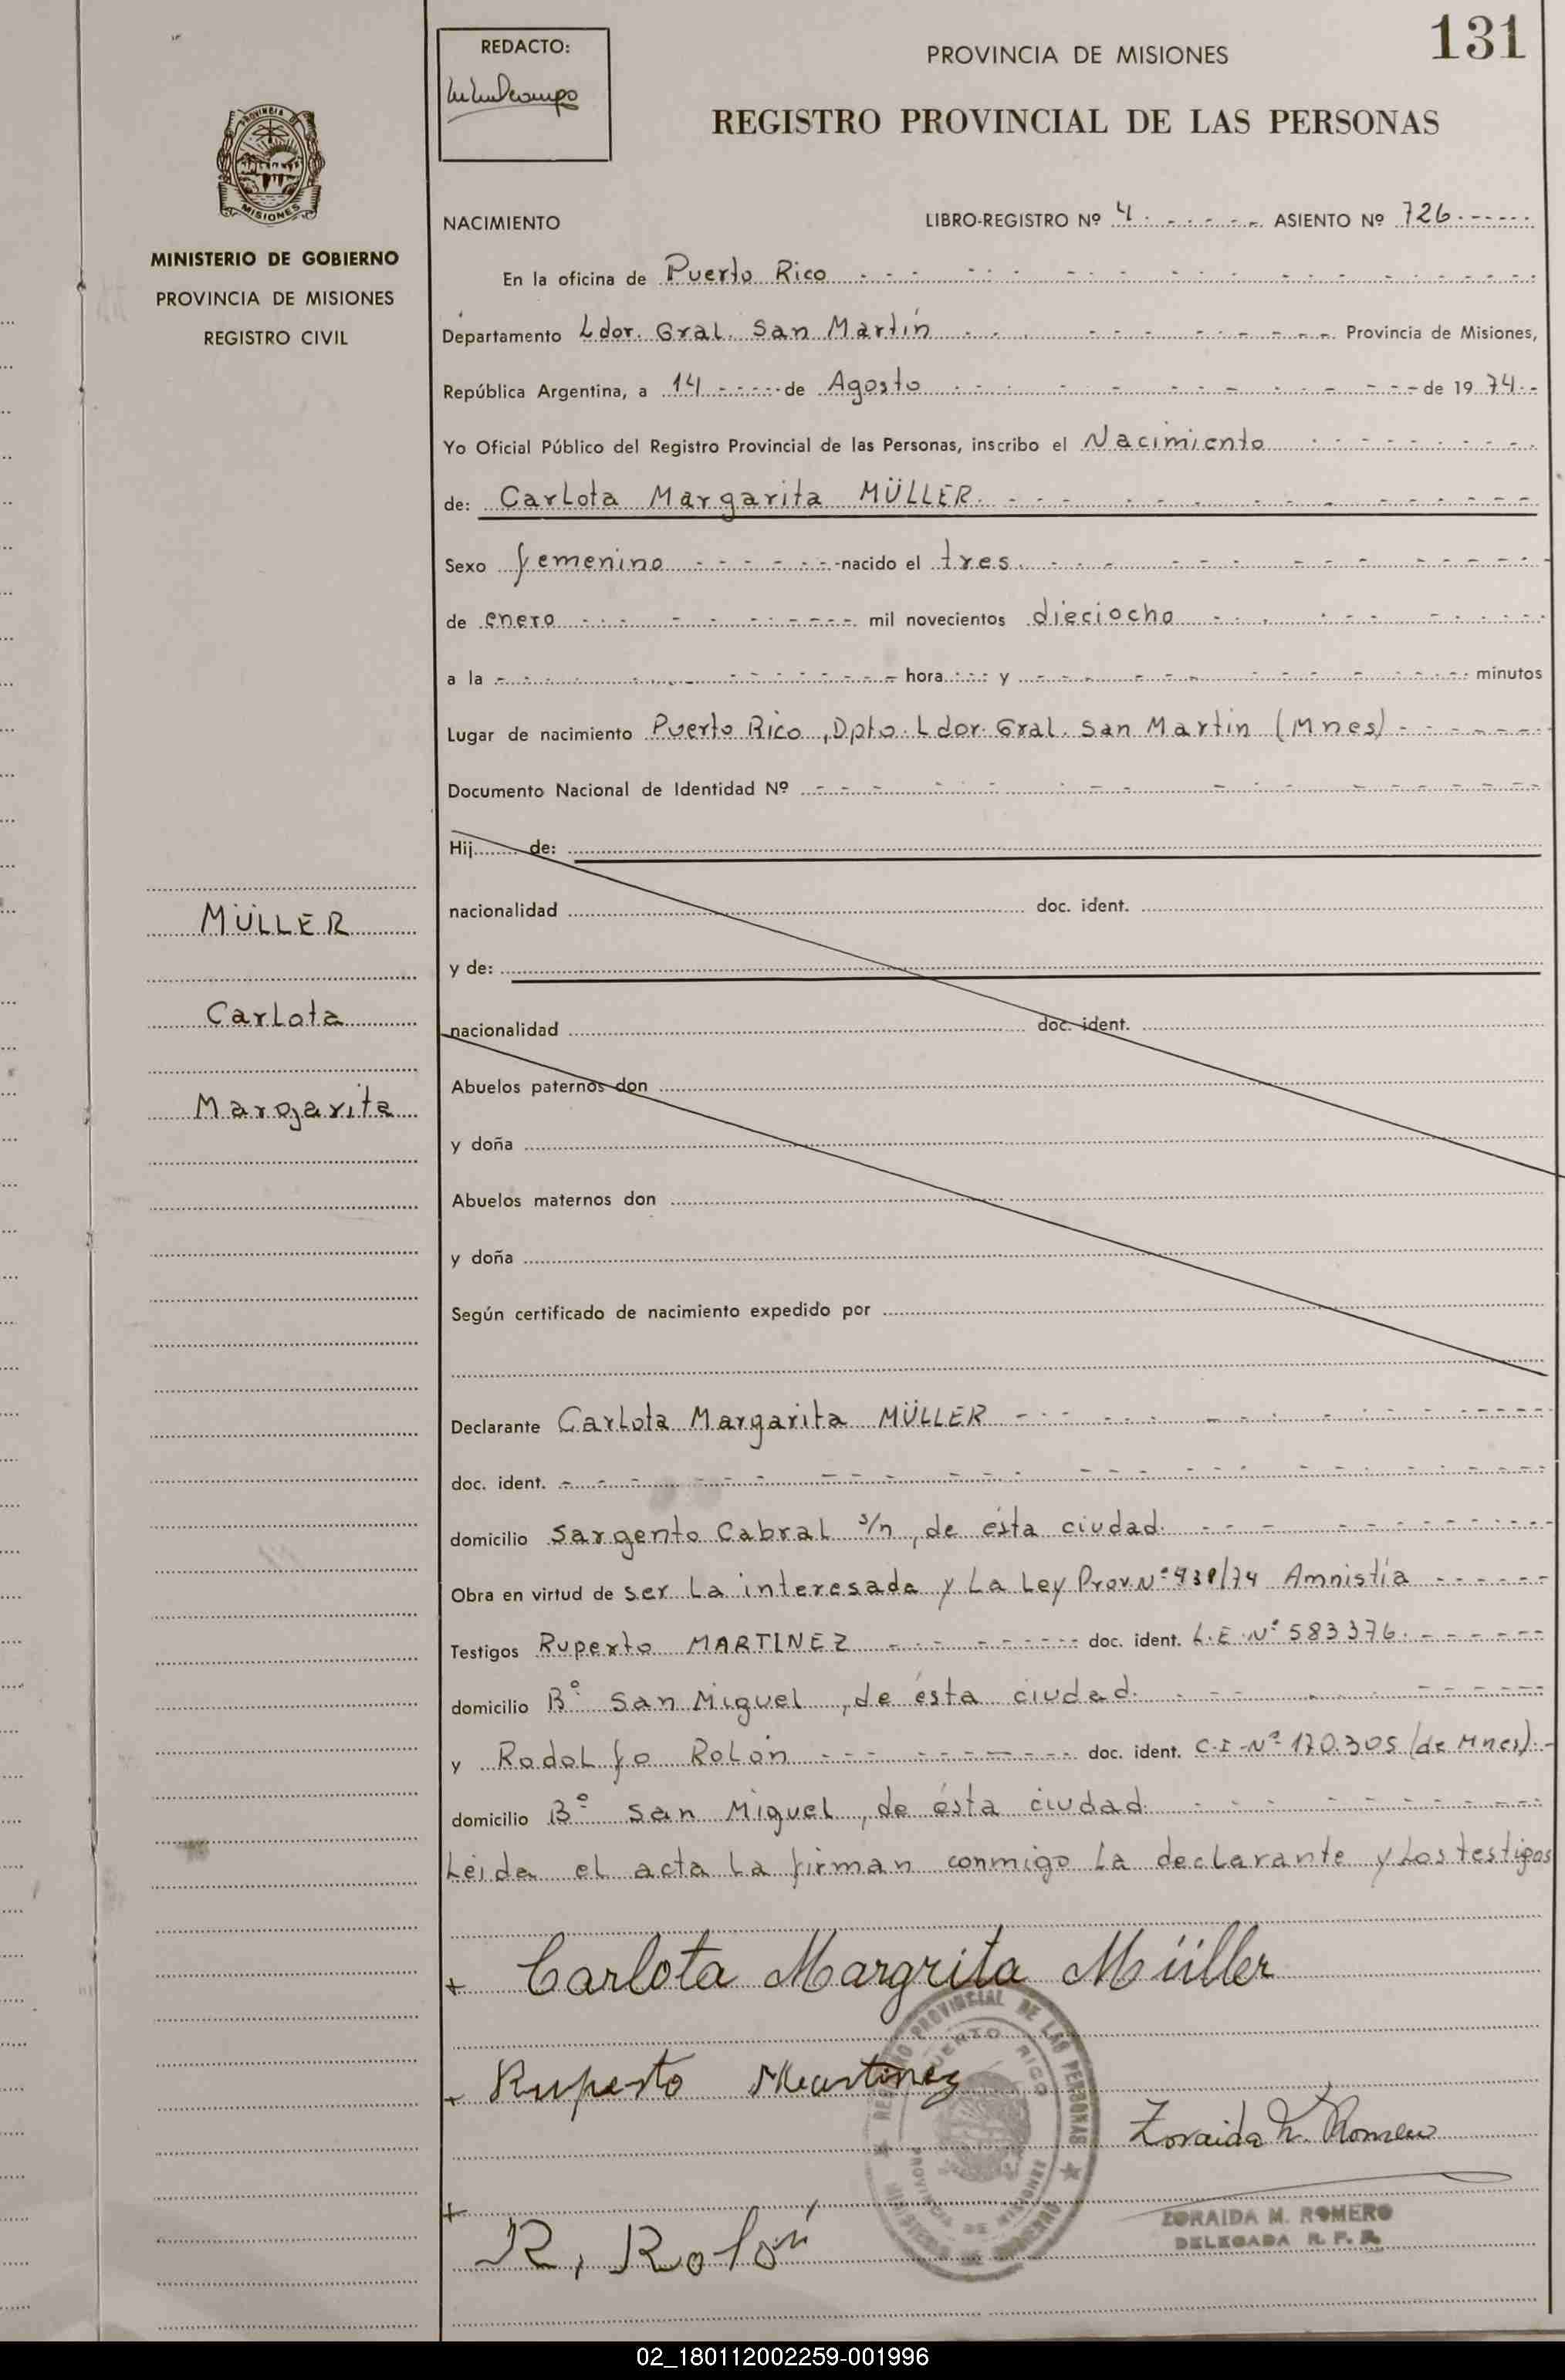 131
REDACTO:
PROVINCIA DE MISIONES
REGISTRO PROVINCIAL DE LAS PERSONAS
PROVINCIA DE
MISIONES
MINISTERIO DE GOBIERNO
PROVINCIA DE MISIONES
REGISTRO CIVIL
NACIMIENTO LIBRO-REGISTRO Nº 4 ASIENTO Nº 726
En la oficina de Puerto Rico
Departamento Ldor. Gral. San Martín Provincia de Misiones,
República Argentina, a 14 de Agosto de 1974
Yo Oficial Público del Registro Provincial de las Personas, inscribo el Nacimiento
de: Carlota Margarita MÜLLER
Sexo femenino nacido el tres
de enero mil novecientos dieciocho
a la hora y minutos
Lugar de nacimiento Puerto Rico, Dpto. Ldor. Gral. San Martin (Mnes)
Documento Nacional de Identidad Nº
Hij de:
nacionalidad doc. ident.
y de:
nacionalidad doc. ident.
Abuelos paternos don
y doña
Abuelos maternos don
y doña
Según certificado de nacimiento expedido por
MÜLLER
Carlota
Margarita
Declarante Carlota Margarita MÜLLER
doc. ident.
domicilio Sargento Cabral s/n, de ésta ciudad.
Obra en virtud de ser La interesada y La Ley Prov. Nº /74 Amnistía
Testigos Ruperto MARTINEZ doc. ident. L.E. Nº 583376.
domicilio Bº San Miguel, de ésta ciudad.
y Rodolfo Rolón doc. ident. C.I. Nº 170.305 (de Mnes).
domicilio Bº San Miguel, de ésta ciudad
Leida el acta la firman conmigo la declarante y Los testigos
+ Carlota Margrita Müller
+ Ruperto Martinez
+ R. Rolón
REGISTRO PROVINCIAL DE LAS PERSONAS
PUERTO RICO
PROVINCIA DE MISIONES
MINISTERIO DE GOBIERNO
Zoraida M. Romero
ZORAIDA M. ROMERO
DELEGADA R. P. P.
02_180112002259-001996